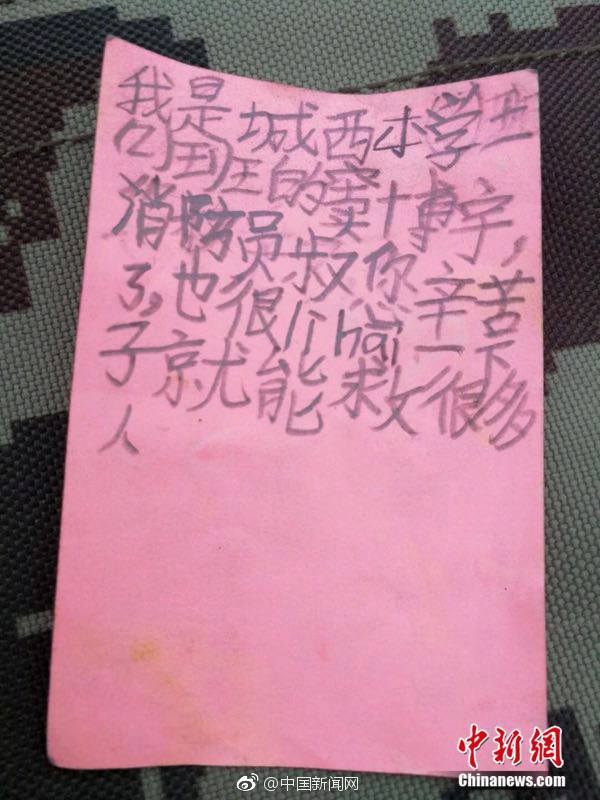 我是城西小学
班的窦博宇,
消防员叔您辛苦
了,也很li hai一下
子就能救很多
人
中新网
Chinanews.com
@中国新闻网